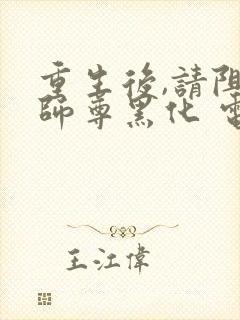 重生後,請阻
師尊黑化
王江偉